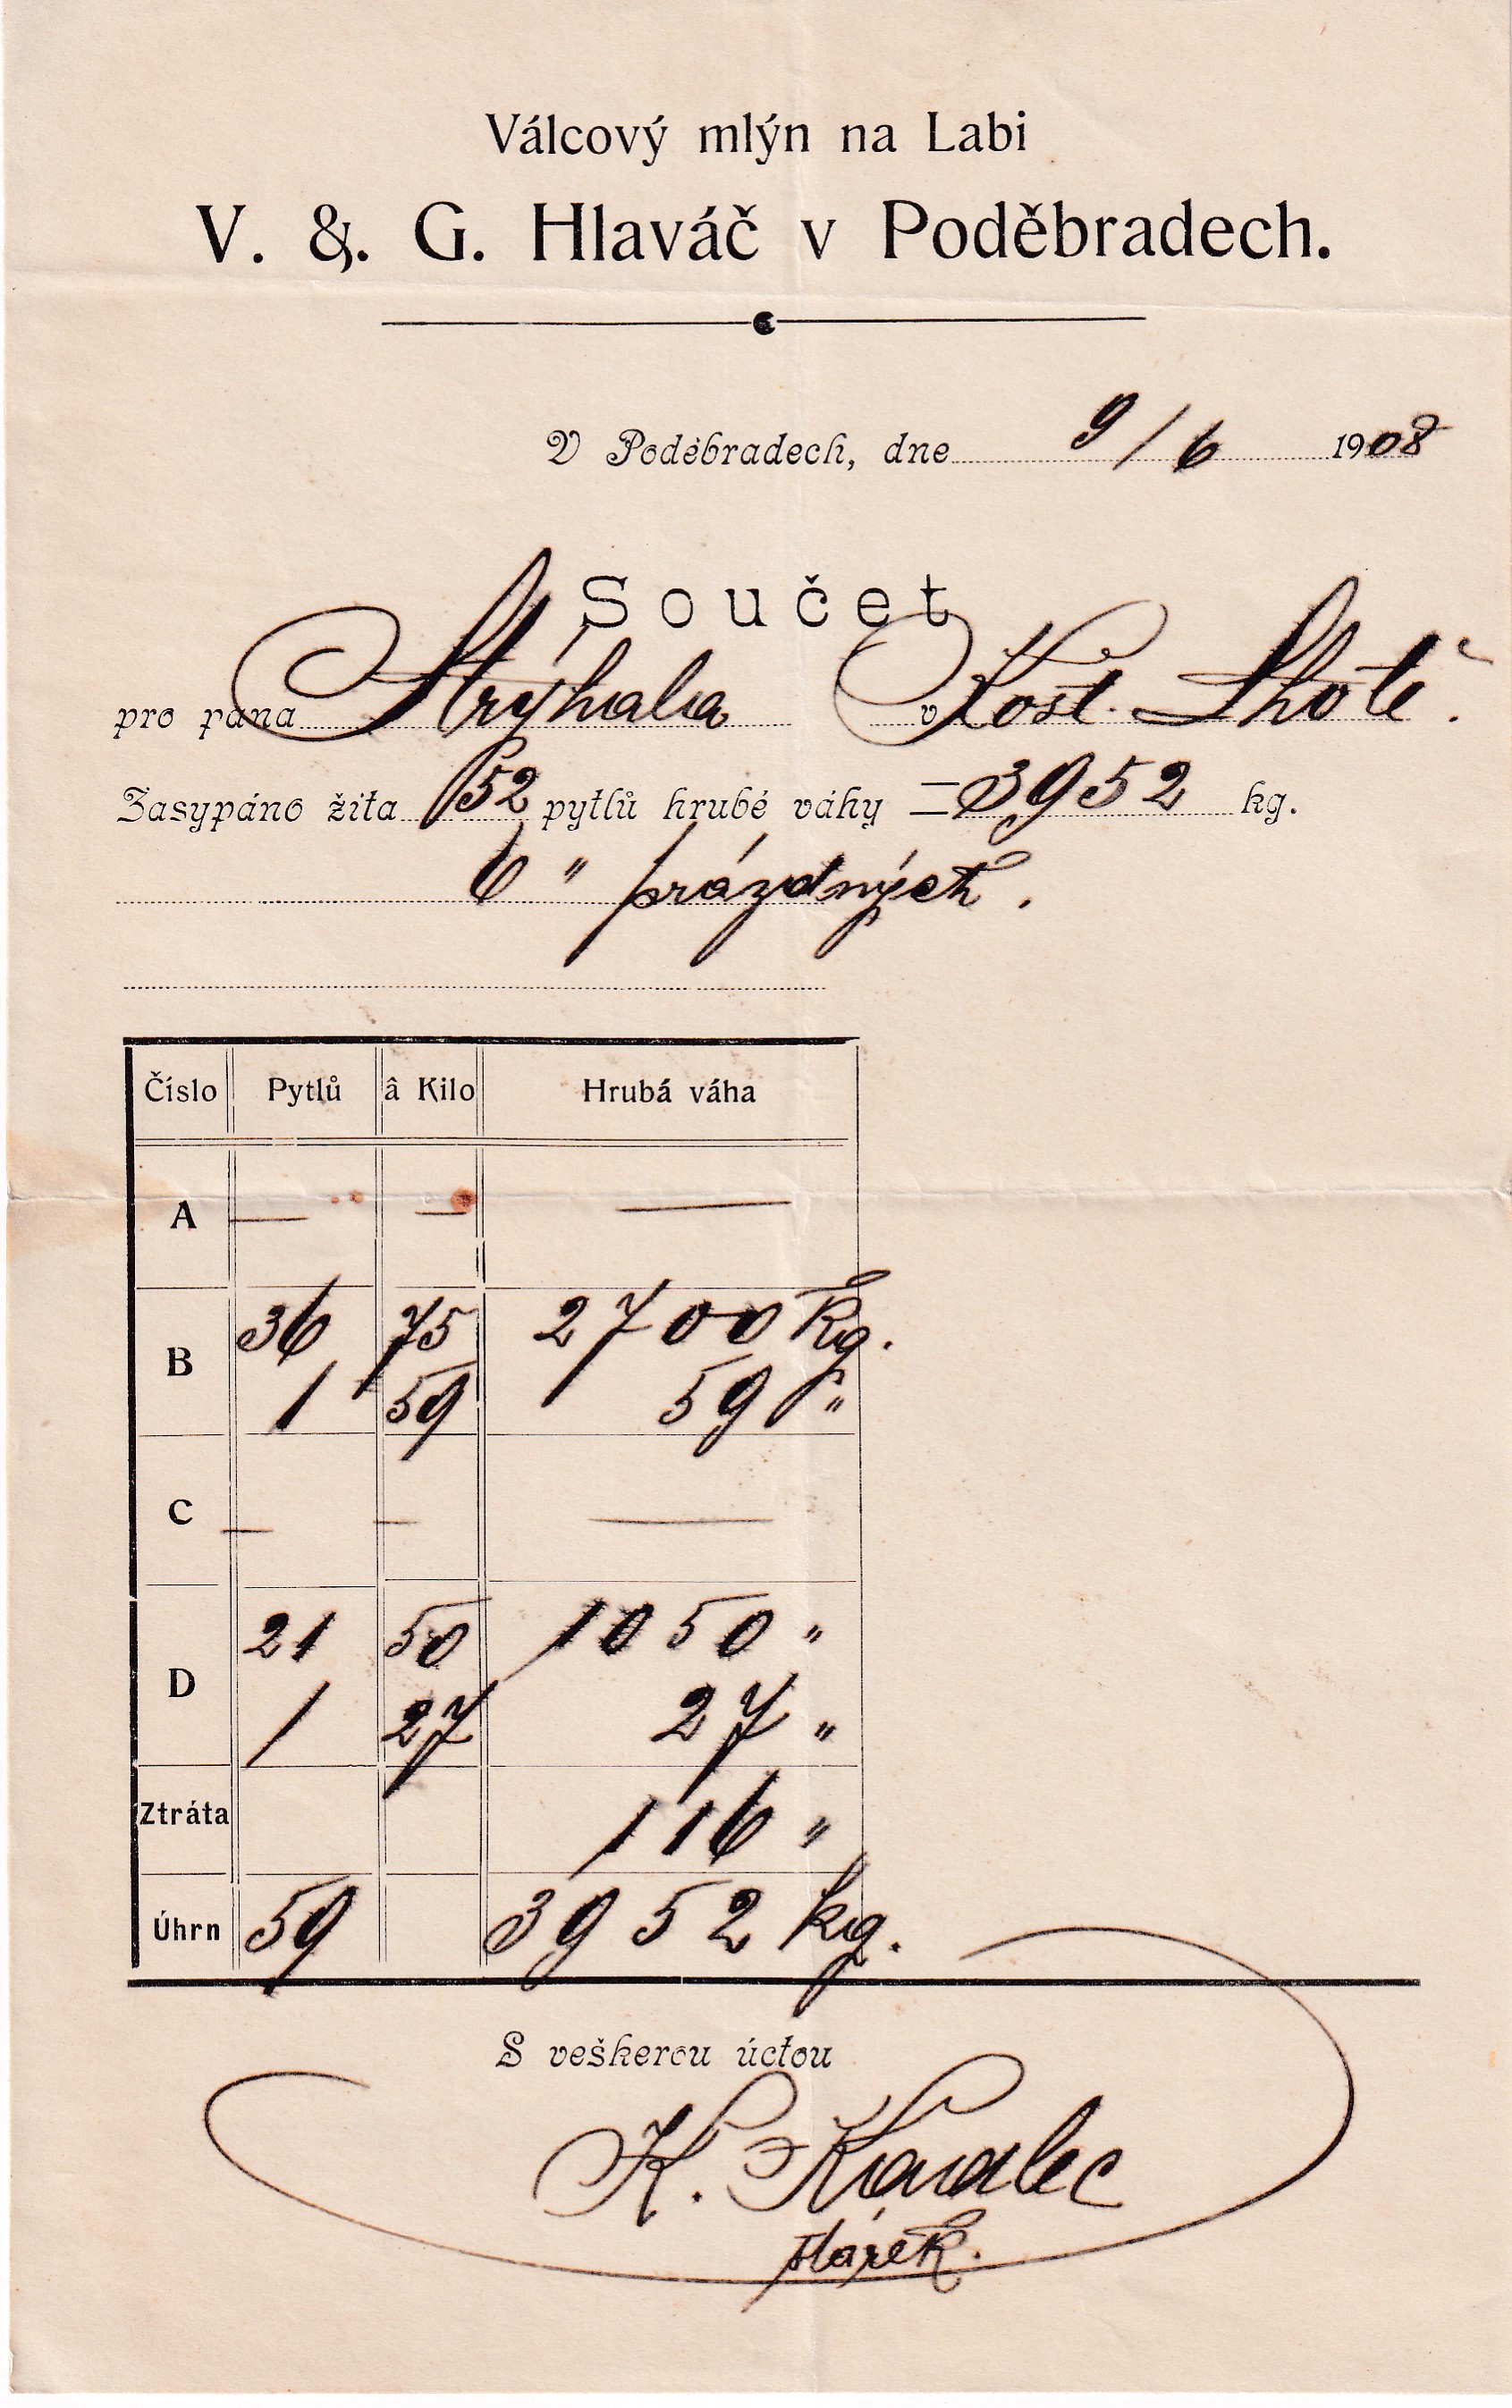 Válcový mlýn na Labi
V. &. G. Hlaváč v Poděbradech.
V Poděbradech, dne 9/6 1908
Součet
pro pána Strýhala v Kost. Lhotě.
Zasypáno žita 52 pytlů hrubé váhy = 3952 kg.
6 " prázdných.
Číslo Pytlů â Kilo Hrubá váha
A — — —
B 36 75 2700 kg.
1 59 59 "
C — — —
D 21 50 1050 "
1 27 27 "
Ztráta 116 "
Úhrn 59 3952 kg.
S veškerou úctou
K. Kavalec
stárek.